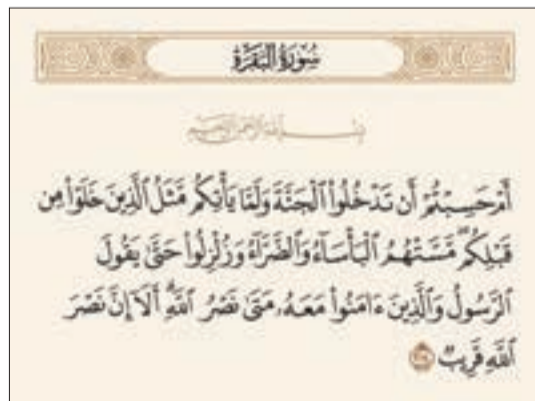 سُورَةُ الْبَقَرَةِ
بِسْمِ اللَّهِ الرَّحْمَٰنِ الرَّحِيمِ
أَمْ حَسِبْتُمْ أَن تَدْخُلُوا۟ ٱلْجَنَّةَ وَلَمَّا يَأْتِكُم مَّثَلُ ٱلَّذِينَ خَلَوْا۟ مِن
قَبْلِكُم ۖ مَّسَّتْهُمُ ٱلْبَأْسَآءُ وَٱلضَّرَّآءُ وَزُلْزِلُوا۟ حَتَّىٰ يَقُولَ
ٱلرَّسُولُ وَٱلَّذِينَ ءَامَنُوا۟ مَعَهُۥ مَتَىٰ نَصْرُ ٱللَّهِ ۗ أَلَآ إِنَّ نَصْرَ
ٱللَّهِ قَرِيبٌ